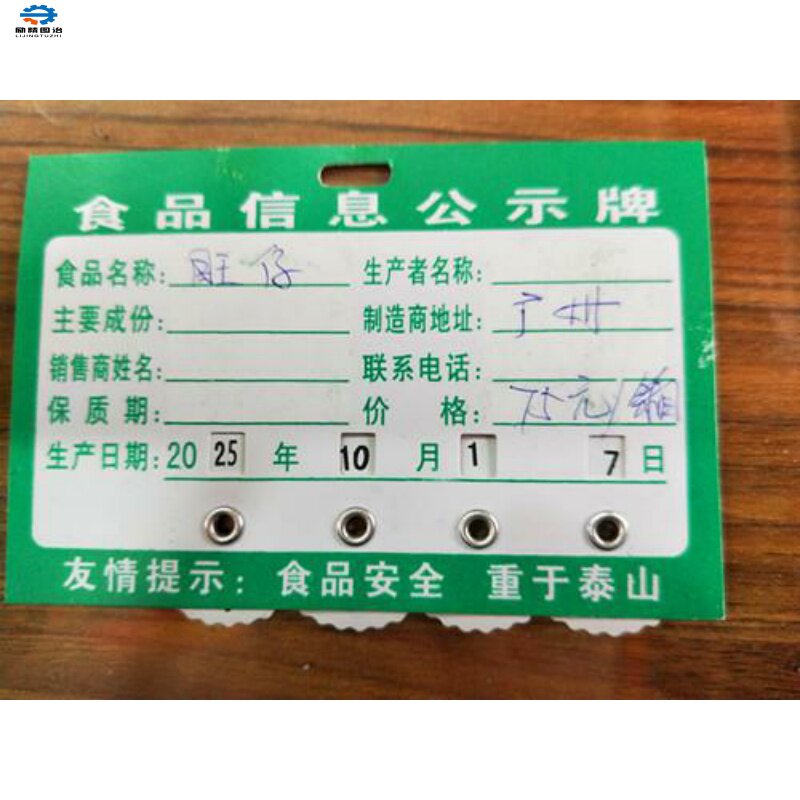 励精图治
LIJINGTUZHI
食品信息公示牌
食品名称: 旺仔 生产者名称:
主要成份: 制造商地址: 广州
销售商姓名: 联系电话:
保质期: 价格: 75元/箱
生产日期: 2025年10月17日
友情提示: 食品安全 重于泰山